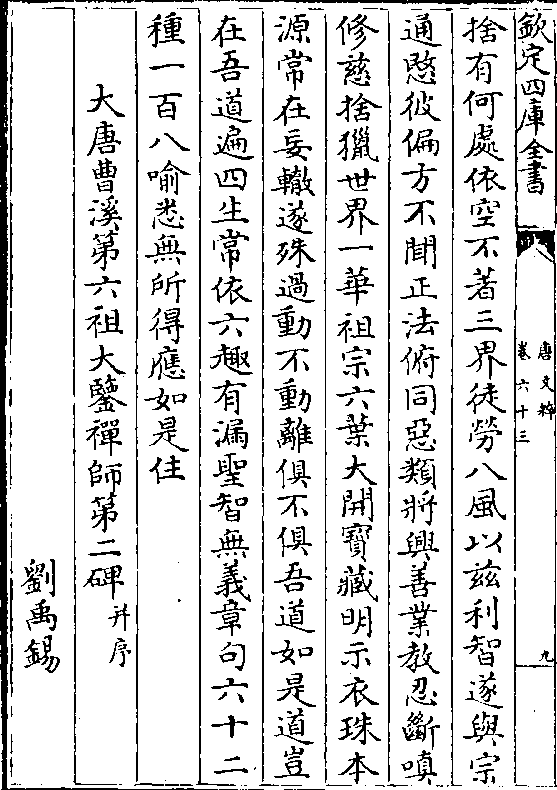 欽定四庫全書
唐文粹
卷六十三
九
捨有何處依空不著三界徒勞八風以茲利智遂與宗
通愍彼偏方不聞正法俯同惡類將興善業教忍斷嗔
修慈捨獵世界一華祖宗六葉大開寶藏明示衣珠本
源常在妄轍遂殊過動不動離俱不俱吾道如是道豈
在吾道遍四生常依六趣有漏聖智無義章句六十二
種一百八喻悉無所得應如是住
大唐曹溪第六祖大鑒禪師第二碑 并序
劉禹錫